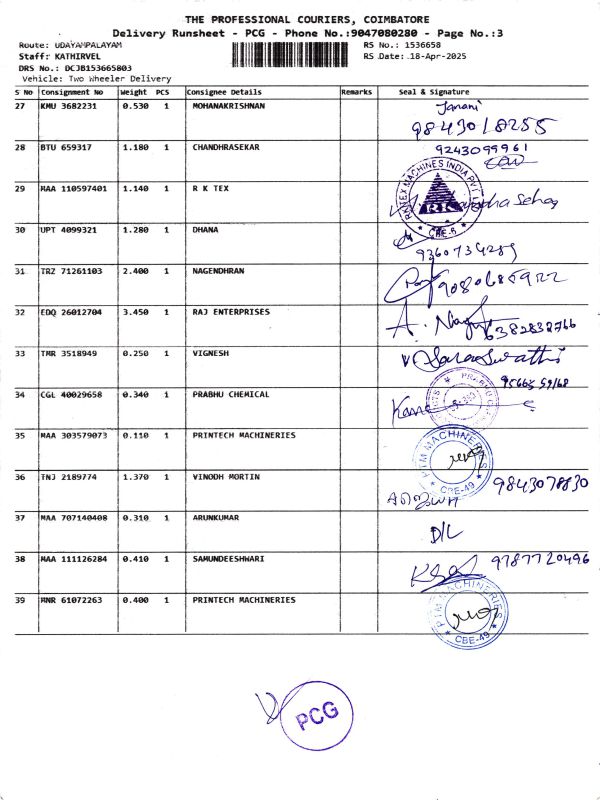 THE PROFESSIONAL COURIERS, COIMBATORE
Delivery Runsheet - PCG - Phone No.:9047080280 - Page No.:3
Route: UDAYAMPALAYAM
RS No.: 1536658
Staff: KATHIRVEL
RS Date: 18-Apr-2025
DRS No.: DCJB153665803
Vehicle: Two Wheeler Delivery
S No Consignment No Weight PCS Consignee Details Remarks Seal & Signature
27 KMU 3682231 0.530 1 MOHANAKRISHNAN Janani
9843018255
28 BTU 659317 1.180 1 CHANDHRASEKAR 9243099961
29 MAA 110597401 1.140 1 R K TEX
MACHINES INDIA PVT
CBE-6
30 UPT 4099321 1.280 1 DHANA
9360734289
31 TRZ 71261103 2.400 1 NAGENDHRAN
32 EDQ 26012704 3.450 1 RAJ ENTERPRISES
6382832766
33 TMR 3518949 0.250 1 VIGNESH Saraswathi
34 CGL 40029658 0.340 1 PRABHU CHEMICAL
35 MAA 303579073 0.110 1 PRINTECH MACHINERIES
PTM MACHINERIES
CBE-49
36 TNJ 2189774 1.370 1 VINODH MORTIN 9843078830
37 MAA 707140408 0.310 1 ARUNKUMAR D/L
38 MAA 111126284 0.410 1 SAMUNDEESHWARI 9787720496
39 MNR 61072263 0.400 1 PRINTECH MACHINERIES
PTM MACHINERIES
CBE-49
PCG